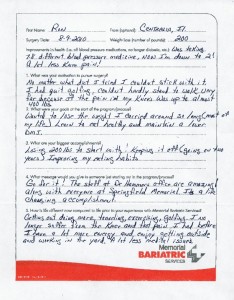 First Name: Ron Town (optional): Centralia, Il
Surgery Date: 8-9-2010 Weight loss (number of pounds): 200
Improvements in health (i.e. off blood pressure medications, no longer diabetic, etc.): Was taking
7.8 different blood pressure medicine, Now I'm down to 2!
A lot less Knee pain!
1. What was your motivation to pursue surgery?
No matter what diet I tried I couldn't stick with it.
I had quit golfing, couldn't hardly walk to walk very
far because of the pain in my Knees was up to almost
400 lbs.
Wanted to lose the weight I carried around so long (most of
my life) Learn to eat healthy and maintain a lower
BMI.
3. What was your biggest accomplishment?
Losing 200 lbs to start with! Keeping it off (going on two
years) Improving my eating habits
4. What message would you give to someone just starting out in the program/process?
Go for it! The staff at Dr offices are amazing
along with everyone at Springfield Memorial. It's a life
changing accomplishment
5. How is life different now compared to life prior to your experience with Memorial Bariatric Services?
Getting out doing more, traveling, exercising, golfing. I no
longer suffer from the Knee and that pain I had before
I have a lot more energy and enjoy getting outside
and working in the yard. A lot less medical issues.
Memorial
BARIATRIC
SERVICES